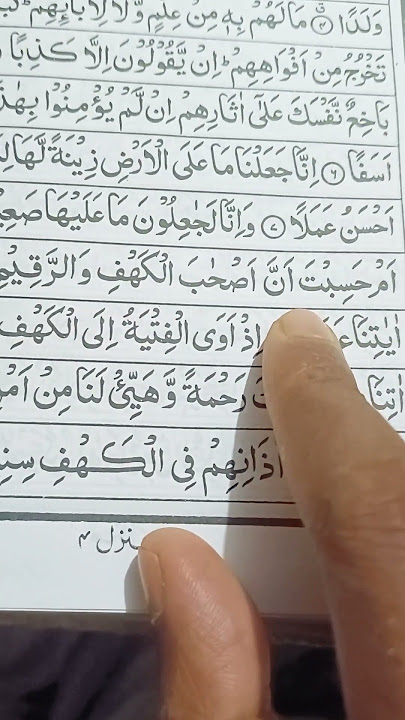 وَلَدًا ۝ مَا لَهُمْ بِهٖ مِنْ عِلْمٍ وَّلَا لِاٰبَآئِهِمْ ؕ
تَخْرُجُ مِنْ اَفْوَاهِهِمْ ؕ اِنْ يَّقُوْلُوْنَ اِلَّا كَذِبًا
بَاخِعٌ نَّفْسَكَ عَلٰٓى اٰثَارِهِمْ اِنْ لَّمْ يُؤْمِنُوْا بِهٰذَا
اَسَفًا ۝۶ اِنَّا جَعَلْنَا مَا عَلَى الْاَرْضِ زِيْنَةً لَّهَا
اَحْسَنُ عَمَلًا ۝۷ وَاِنَّا لَجٰعِلُوْنَ مَا عَلَيْهَا
اَمْ حَسِبْتَ اَنَّ اَصْحٰبَ الْكَهْفِ وَالرَّقِيْمِ
اٰيٰتِنَا اِذْ اَوَى الْفِتْيَةُ اِلَى الْكَهْفِ
اٰتِنَا رَحْمَةً وَّهَيِّئْ لَنَا مِنْ
اٰذَانِهِمْ فِى الْكَهْفِ
منزل ۴